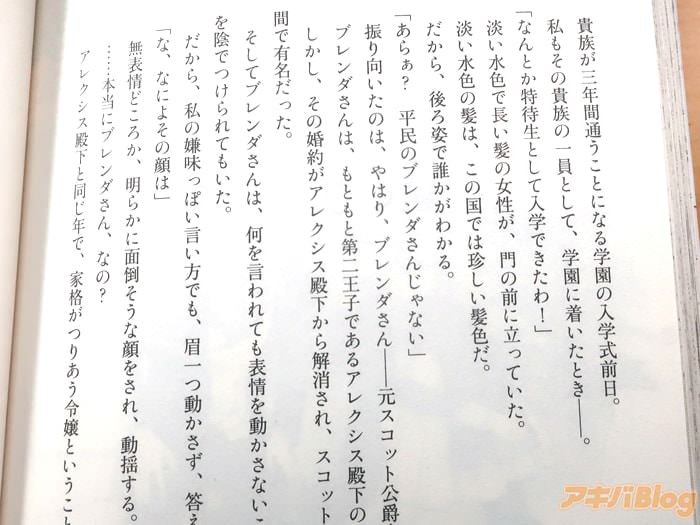 貴族が三年間通うことになる学園の入学式前日。
私もその貴族の一員として、学園に着いたとき――。
「なんとか特待生として入学できたわ！」
淡い水色で長い髪の女性が、門の前に立っていた。
淡い水色の髪は、この国では珍しい髪色だ。
だから、後ろ姿で誰かがわかる。
「あらぁ？　平民のブレンダさんじゃない」
振り向いたのは、やはり、ブレンダさん――元スコット公爵
ブレンダさんは、もともと第二王子であるアレクシス殿下の
しかし、その婚約がアレクシス殿下から解消され、スコット
間で有名だった。
そしてブレンダさんは、何を言われても表情を動かさないこ
を陰でつけられてもいた。
だから、私の嫌味っぽい言い方でも、眉一つ動かさず、答え
「な、なによその顔は」
無表情どころか、明らかに面倒そうな顔をされ、動揺する。
……本当にブレンダさん、なの？
アレクシス殿下と同じ年で、家格がつりあう令嬢ということ
アキバBlog